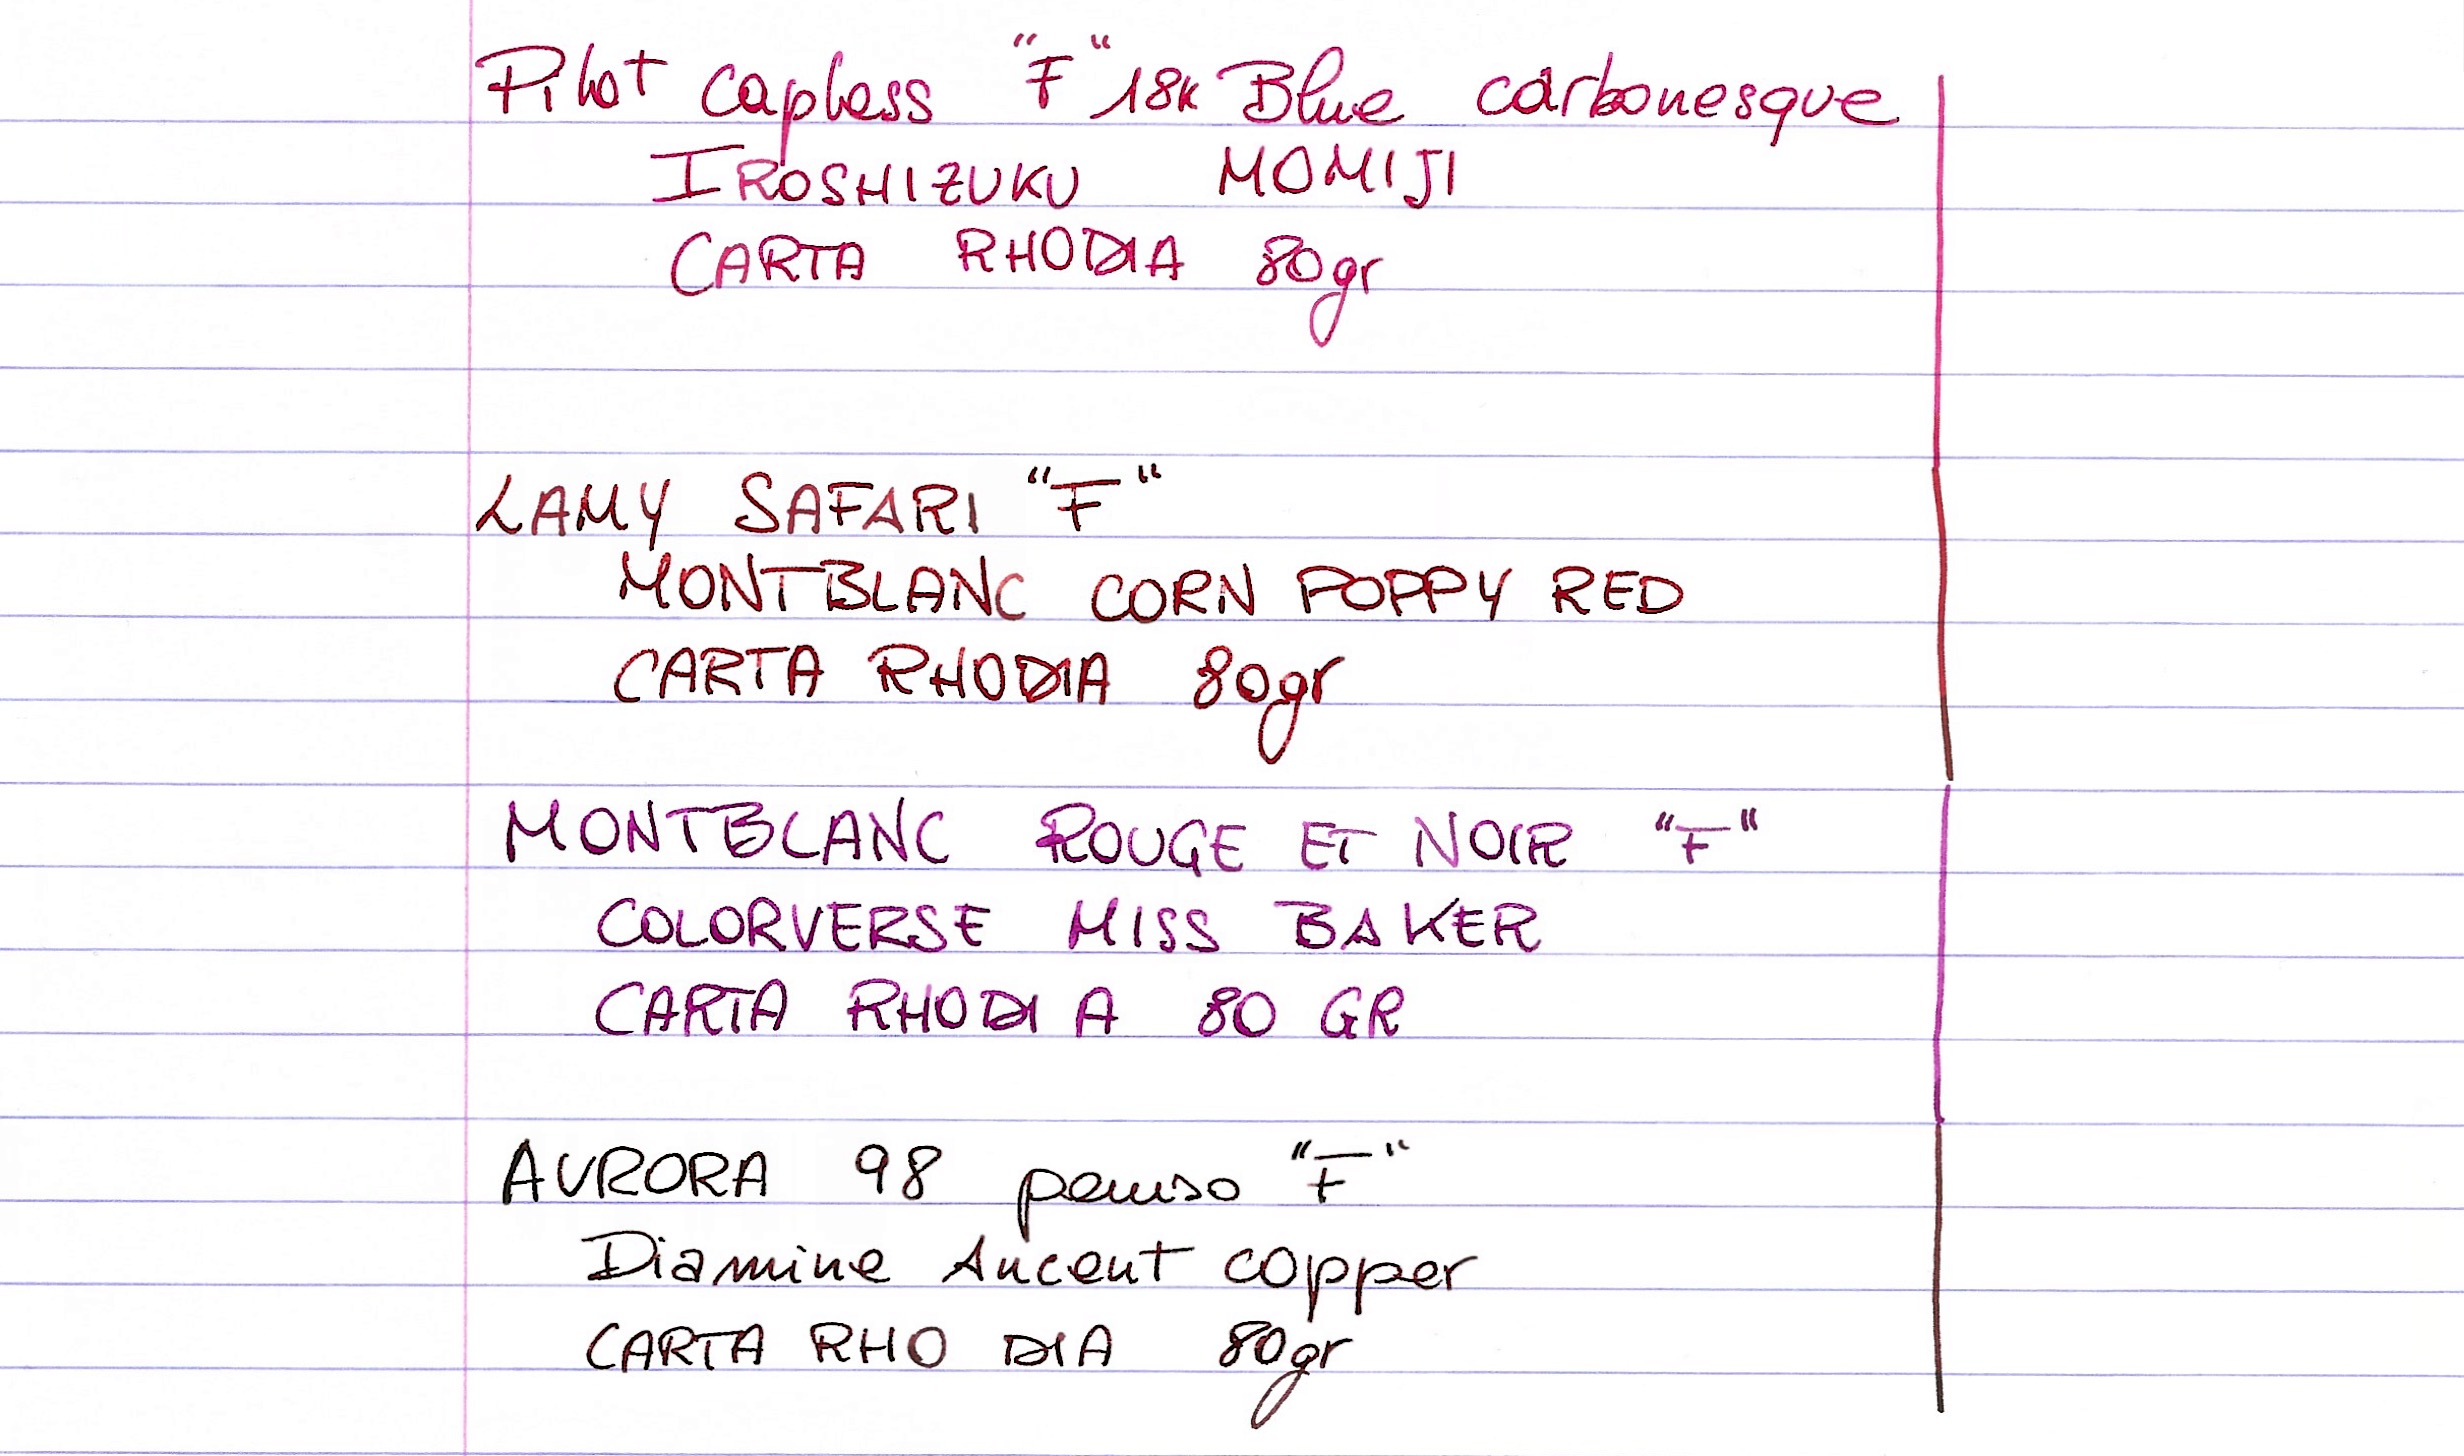 Pilot capless "F" 18k Blue carbonesque
IROSHIZUKU MOMIJI
CARTA RHODIA 80gr
LAMY SAFARI "F"
MONTBLANC CORN POPPY RED
CARTA RHODIA 80gr
MONTBLANC ROUGE ET NOIR "F"
COLORVERSE MISS BAKER
CARTA RHODIA 80 GR
AURORA 98 "F"
Diamine Ancent copper
CARTA RHODIA 80gr